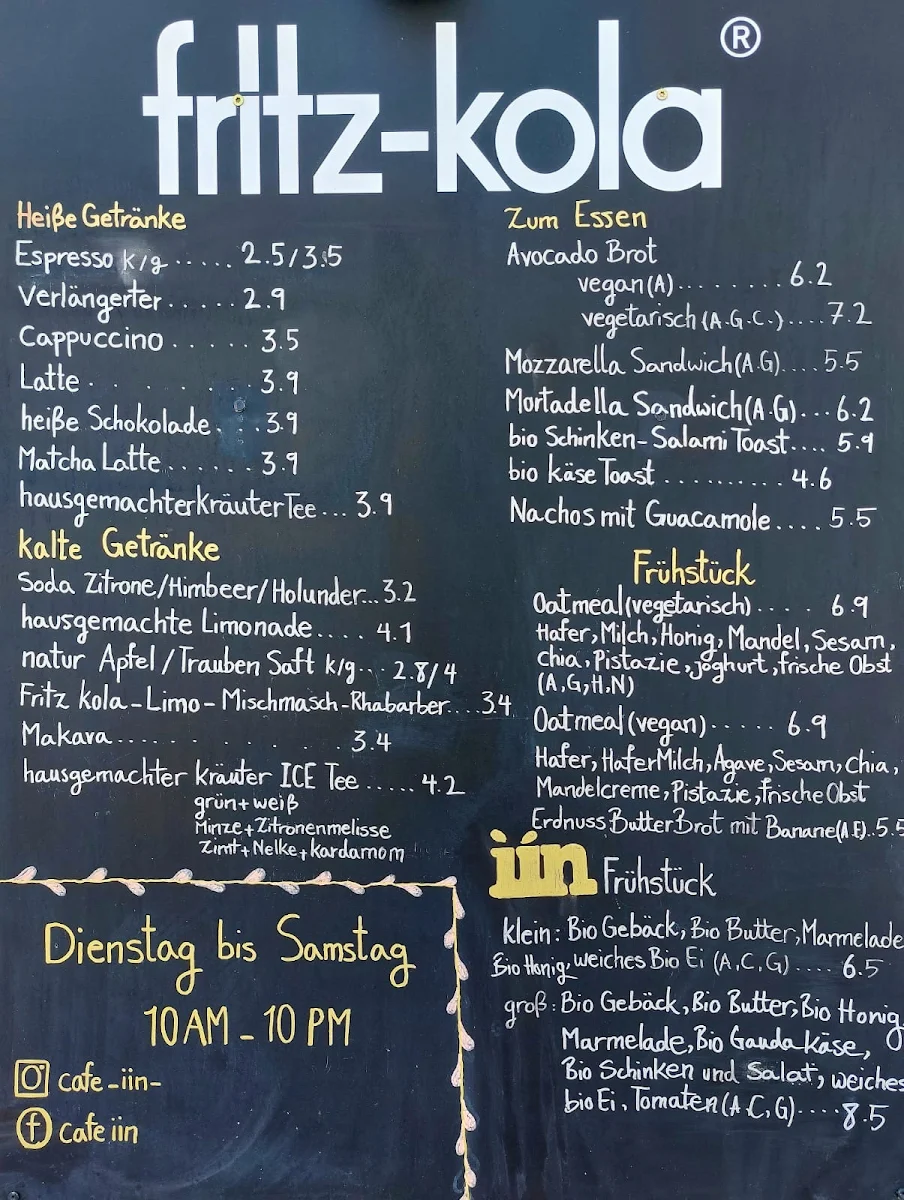 fritz-kola®
Heiße Getränke
Espresso k/g ..... 2.5/3.5
Verlängerter ..... 2.9
Cappuccino ...... 3.5
Latte . . . . . 3.9
heiße Schokolade. . . 3.9
Matcha Latte ...... 3.9
hausgemachter kräuter Tee... 3.9
kalte Getränke
Soda Zitrone/Himbeer/Holunder... 3.2
hausgemachte Limonade.... 4.1
natur Apfel/Trauben Saft k/g... 2.8/4
Fritz kola-Limo-Mischmasch-Rhabarber... 3.4
Makava ...... . . . . 3.4
hausgemachter kräuter ICE Tee ..... 4.2
grün+weiß
Minze+Zitronenmelisse
Zimt+Nelke+kardamom
Dienstag bis Samstag
10 AM - 10 PM
cafe-iin-
f cafe iin
Zum Essen
Avocado Brot
vegan(A)........ 6.2
vegetarisch(A.G.C.).... 7.2
Mozzarella Sandwich(A.G).... 5.5
Mortadella Sandwich(A.G)... 6.2
bio Schinken-Salami Toast.... 5.9
bio käse Toast .......... 4.6
Nachos mit Guacamole .... 5.5
Frühstück
Oatmeal(vegetarisch)..... 6.9
Hafer, Milch, Honig, Mandel, Sesam,
chia, Pistazie, Joghurt, frische Obst
(A,G,H,N)
Oatmeal(vegan)...... 6.9
Hafer, HaferMilch, Agave, Sesam, Chia,
Mandelcreme, Pistazie, frische Obst
Erdnuss Butter Brot mit Banane(A.E).5.5
iin Frühstück
klein: Bio Gebäck, Bio Butter, Marmelade
Bio Honig, weiches Bio Ei (A,C,G) .... 6.5
groß: Bio Gebäck, Bio Butter, Bio Honig
Marmelade, Bio Gauda käse,
Bio Schinken und Salat, weiches
bio Ei, Tomaten (A,C,G).... 8.5